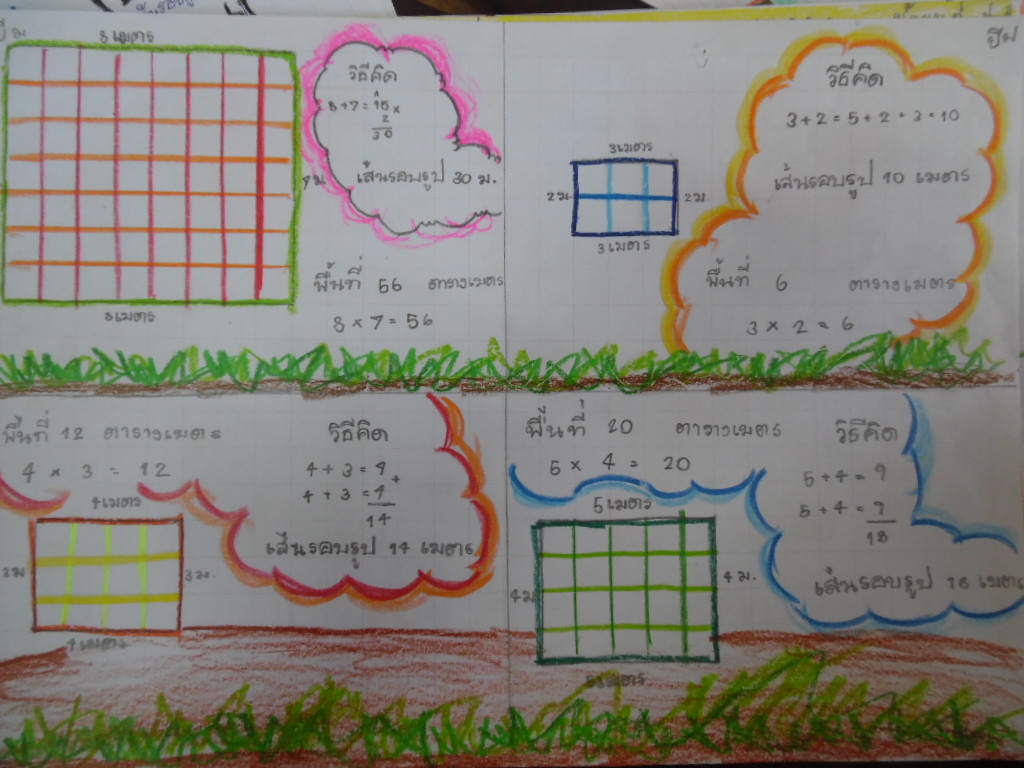 8 เมตร
วิธีคิด
8+7=15×
2
30
เส้นรอบรูป 30 ม.
7 ม
8 เมตร
พื้นที่ 56 ตารางเมตร
8 × 7 = 56
ปีม
วิธีคิด
3+2=5+2+3=10
3 เมตร
2 ม.
2 ม.
3 เมตร
เส้นรอบรูป 10 เมตร
พื้นที่ 6 ตารางเมตร
3 × 2 = 6
พื้นที่ 12 ตารางเมตร
4 × 3 = 12
4 เมตร
3 ม
3 ม.
4 เมตร
วิธีคิด
4+3=7+
4+3=7
14
เส้นรอบรูป 14 เมตร
พื้นที่ 20 ตารางเมตร
5 × 4 = 20
5 เมตร
4 ม
4 ม.
5 เมตร
วิธีคิด
5+4=9
5+4=9
18
เส้นรอบรูป 18 เมตร